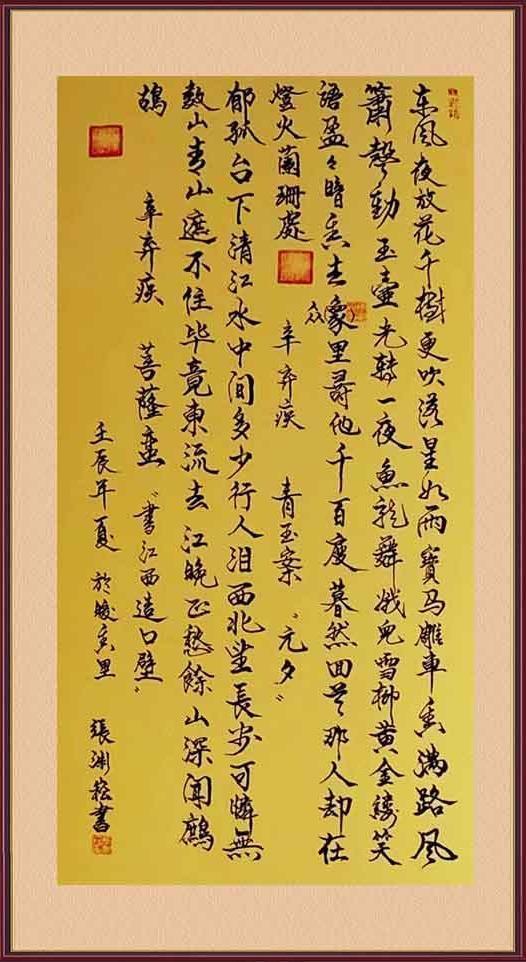 东风夜放花千樹更吹落星如雨寶马雕車香满路风
箫聲動玉壶光轉一夜魚龍舞娥兒雪柳黄金縷笑
語盈々暗香去像里尋他千百度暮然回首那人却在
众
燈火蘭珊處 辛弃疾 青玉案 “元夕”
郁孤台下清江水中间多少行人泪西北望長安可憐無
数山青山遮不住毕竟東流去江晚正愁餘山深闻鷓
鸪 辛弃疾 菩薩蛮 “書江西造口壁”
壬辰年夏 於暖香里 張渊崧書